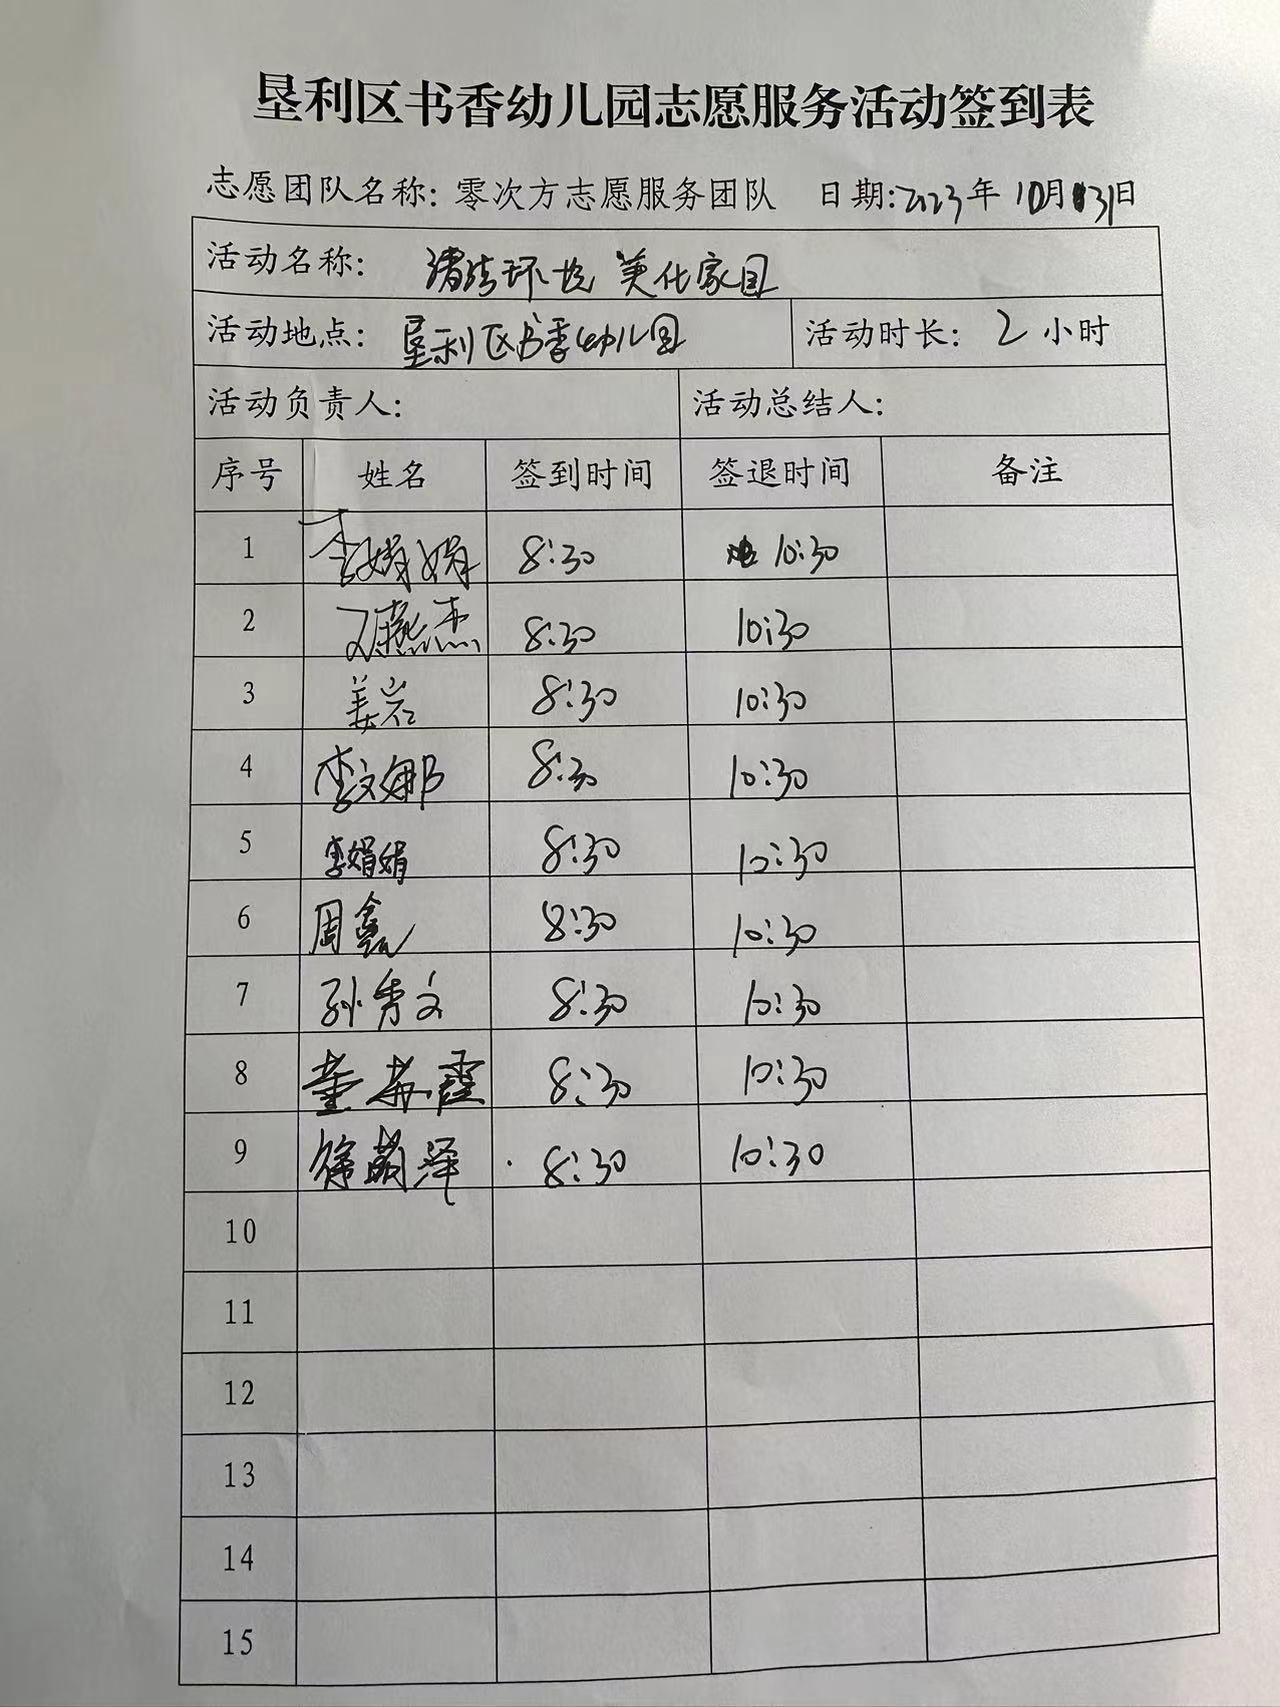 垦利区书香幼儿园志愿服务活动签到表
志愿团队名称：零次方志愿服务团队 日期：2023年10月31日
活动名称： 清洁环境 美化家园
活动地点： 垦利区书香幼儿园 活动时长： 2 小时
活动负责人： 活动总结人：
序号 姓名 签到时间 签退时间 备注
1 李娟娟 8:30 10:30
2 8:30 10:30
3 姜岩 8:30 10:30
4 李文娜 8:30 10:30
5 李娟娟 8:30 10:30
6 周鑫 8:30 10:30
7 孙秀文 8:30 10:30
8 董苏霞 8:30 10:30
9 徐萌泽 8:30 10:30
10
11
12
13
14
15